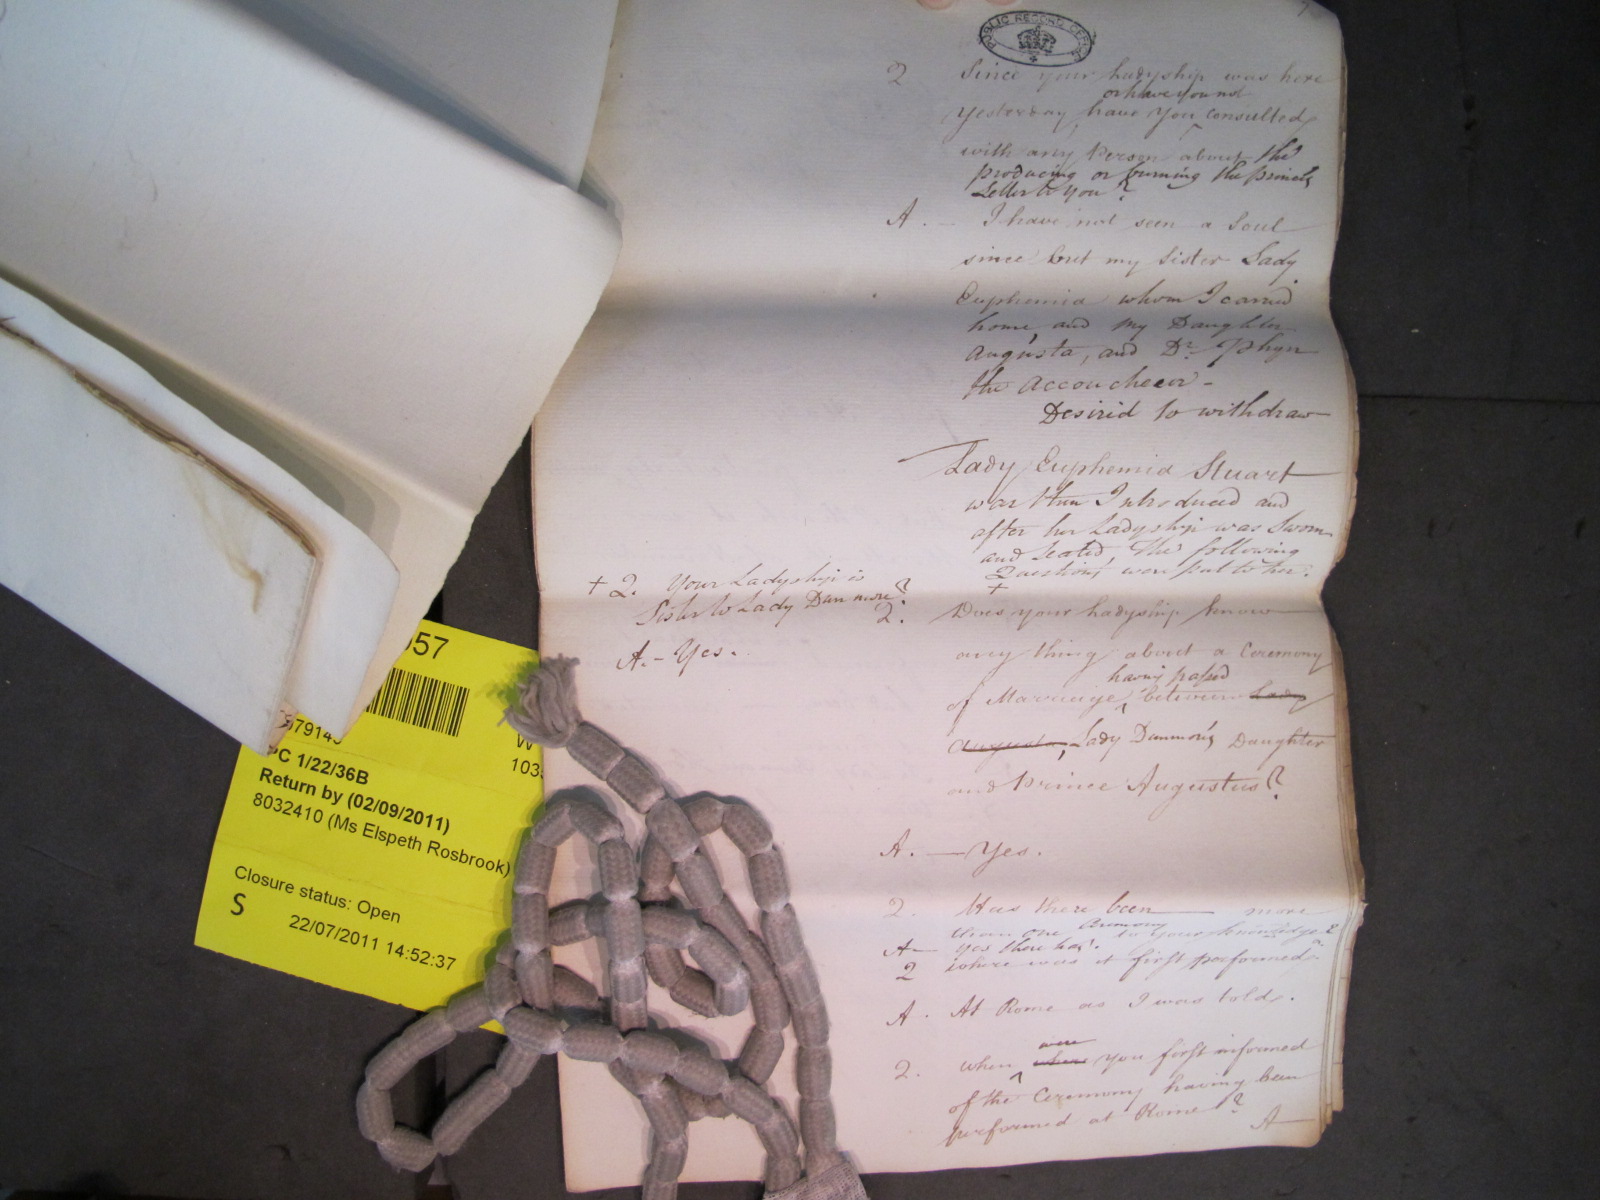 PUBLIC RECORD OFFICE
Q Since your Ladyship was here
or have you not
yesterday, have you consulted
with any Person about the
producing or burning the princes
Letter to you?
A. - I have not seen a Soul
since but my Sister Lady
Euphemia whom I carried
home, and my Daughter
Augusta, and Dr. Phyn
the Accoucheur -
Desired to withdraw
Lady Euphemia Stuart
was then Introduced and
after her Ladyship was Sworn
and Seated, The following
Questions were put to her.
+
+ Q. Your Ladyship is
Sister to Lady Dunmore?
A. - Yes.
Q. Does your Ladyship know
any thing about a Ceremony
having passed
of Marriage, between Lady
Augusta, Lady Dunmore's Daughter
and Prince Augustus?
A. — Yes.
Q. Has there been — more
than one Ceremony to your knowledge?
A— Yes there has.
Q where was it first performed
A. At Rome as I was told.
were
Q. When where you first informed
of the Ceremony having been
performed at Rome?
A—
057
79145
W
103
PC 1/22/36B
Return by (02/09/2011)
8032410 (Ms Elspeth Rosbrook)
Closure status: Open
S 22/07/2011 14:52:37